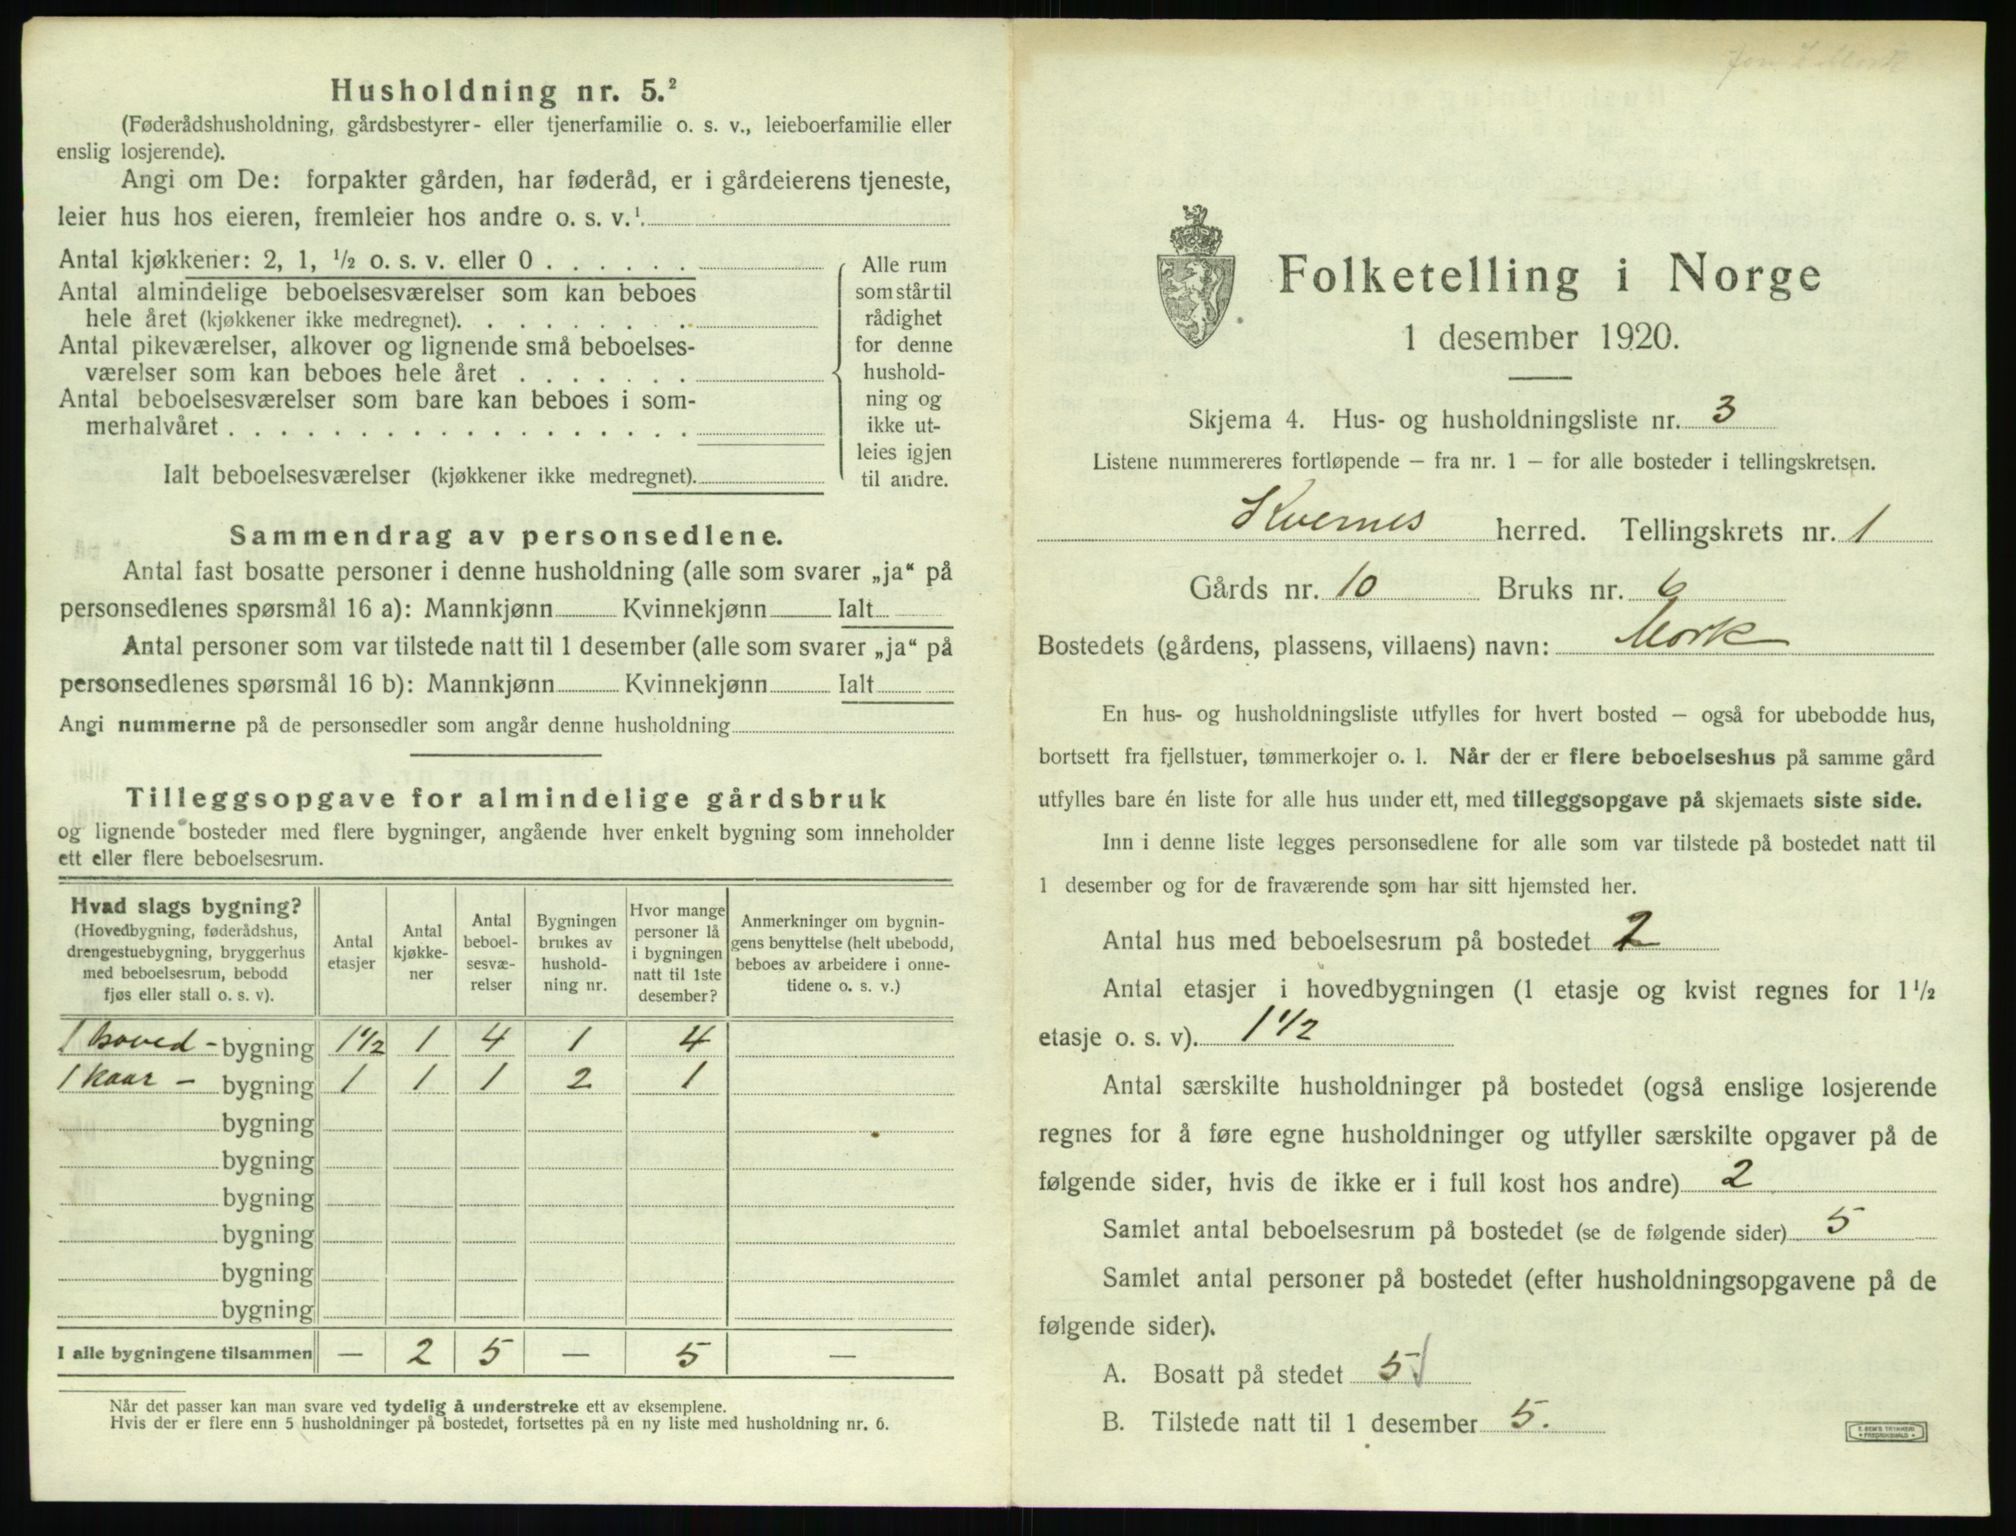 Husholdning nr. 5.²
(Føderådshusholdning, gårdsbestyrer- eller tjenerfamilie o. s. v., leieboerfamilie eller
enslig losjerende).
Angi om De: forpakter gården, har føderåd, er i gårdeierens tjeneste,
leier hus hos eieren, fremleier hos andre o. s. v.¹
Antal kjøkkener: 2, 1, ½ o. s. v. eller 0 . . . . . .
Antal almindelige beboelsesværelser som kan beboes
hele året (kjøkkener ikke medregnet). . . . . . . . .
Antal pikeværelser, alkover og lignende små beboelses-
værelser som kan beboes hele året . . . . . . .
Antal beboelsesværelser som bare kan beboes i som-
merhalvåret . . . . . . . . . . . . . . . . . .
Ialt beboelsesværelser (kjøkkener ikke medregnet).
Alle rum
som står til
rådighet
for denne
hushold-
ning og
ikke ut-
leies igjen
til andre.
Sammendrag av personsedlene.
Antal fast bosatte personer i denne husholdning (alle som svarer „ja“ på
personsedlenes spørsmål 16 a): Mannkjønn Kvinnekjønn Ialt
Antal personer som var tilstede natt til 1 desember (alle som svarer „ja“ på
personsedlenes spørsmål 16 b): Mannkjønn Kvinnekjønn Ialt
Angi nummerne på de personsedler som angår denne husholdning
Tilleggsopgave for almindelige gårdsbruk
og lignende bosteder med flere bygninger, angående hver enkelt bygning som inneholder
ett eller flere beboelsesrum.
Hvad slags bygning?
(Hovedbygning, føderådshus,
drengestuebygning, bryggerhus
med beboelsesrum, bebodd
fjøs eller stall o. s. v).
Antal
etasjer
Antal
kjøkke-
ner
Antal
beboel-
sesvæ-
relser
Bygningen
brukes av
hushold-
ning nr.
Hvor mange
personer lå
i bygningen
natt til 1ste
desember?
Anmerkninger om bygnin-
gens benyttelse (helt ubebodd,
beboes av arbeidere i onne-
tidene o. s. v.)
1 hoved - bygning 1½ 1 4 1 4
1 kaar - bygning 1 1 1 2 1
bygning
bygning
bygning
bygning
bygning
bygning
I alle bygningene tilsammen — 2 5 — 5 —
Når det passer kan man svare ved tydelig å understreke ett av eksemplene.
Hvis der er flere enn 5 husholdninger på bostedet, fortsettes på en ny liste med husholdning nr. 6.
Folketelling i Norge
1 desember 1920.
Skjema 4. Hus- og husholdningsliste nr. 3
Listene nummereres fortløpende — fra nr. 1 — for alle bosteder i tellingskretsen.
Kvernes herred. Tellingskrets nr. 1
Gårds nr. 10 Bruks nr. 6
Bostedets (gårdens, plassens, villaens) navn: Mork
En hus- og husholdningsliste utfylles for hvert bosted — også for ubebodde hus,
bortsett fra fjellstuer, tømmerkojer o. l. Når der er flere beboelseshus på samme gård
utfylles bare én liste for alle hus under ett, med tilleggsopgave på skjemaets siste side.
Inn i denne liste legges personsedlene for alle som var tilstede på bostedet natt til
1 desember og for de fraværende som har sitt hjemsted her.
Antal hus med beboelsesrum på bostedet 2
Antal etasjer i hovedbygningen (1 etasje og kvist regnes for 1½
etasje o. s. v). 1½
Antal særskilte husholdninger på bostedet (også enslige losjerende
regnes for å føre egne husholdninger og utfyller særskilte opgaver på de
følgende sider, hvis de ikke er i full kost hos andre) 2
Samlet antal beboelsesrum på bostedet (se de følgende sider) 5
Samlet antal personer på bostedet (efter husholdningsopgavene på de
følgende sider).
A. Bosatt på stedet 5
B. Tilstede natt til 1 desember 5.